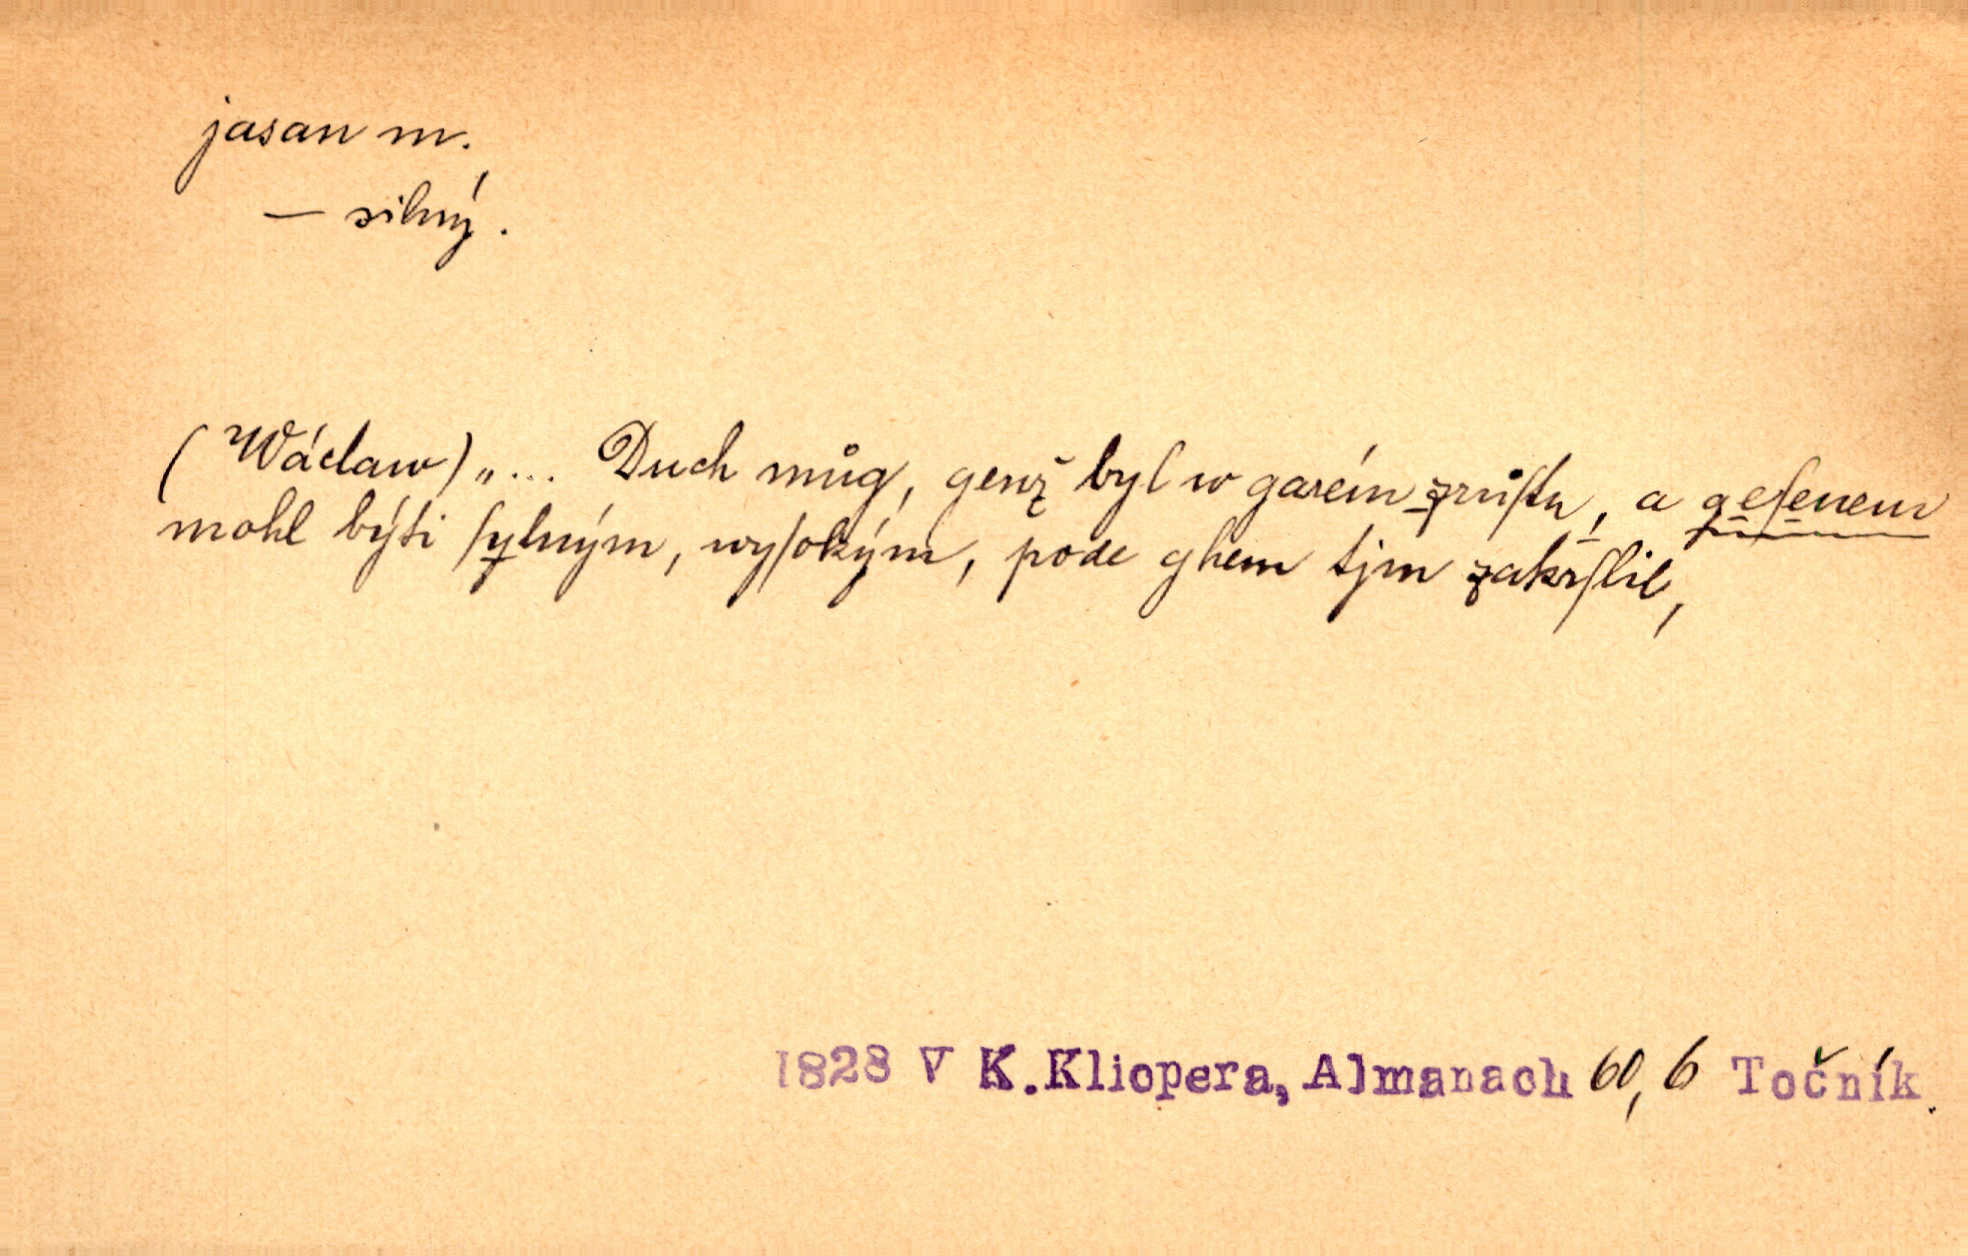 jasan m.
— silný.
(Wáclaw) „... Duch můg, genž byl w garém zrůſtu, a geſenem
mohl býti ſylným, wyſokým, pode ghem tjm zakrſlil,
1828 V K.Kliopera, Almanach 60,6 Točník.